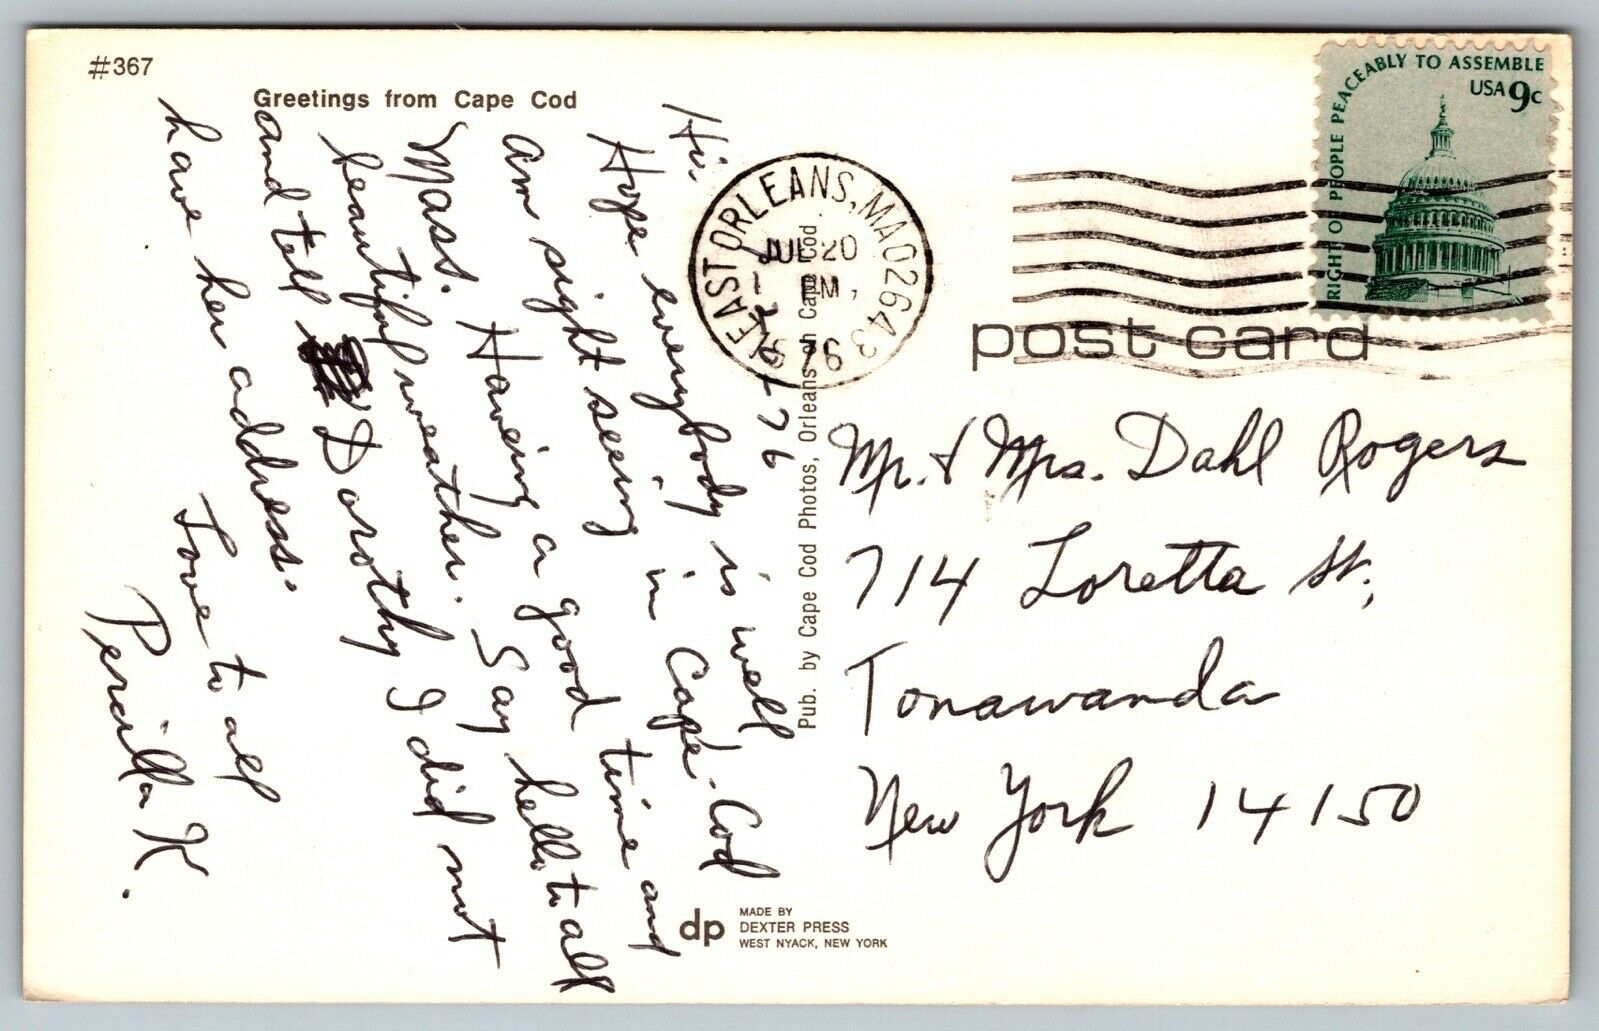 #367
Greetings from Cape Cod
7-20-76
Hi.
Hope everybody is well
Am sight seeing in Cape-Cod
Mass. Haveing a good time and
beautiful weather. Say hello to all
and tell Dorothy I did not
have her address.
Love to all
Percilla K.
Pub. by Cape Cod Photos, Orleans on Cape Cod.
EAST ORLEANS, MA 02643
JUL 20
PM
RIGHT OF PEOPLE PEACEABLY TO ASSEMBLE
USA 9c
post card
Mr. & Mrs. Dahl Rogers
714 Loretta St,
Tonawanda
New York 14150
dp
MADE BY
DEXTER PRESS
WEST NYACK, NEW YORK